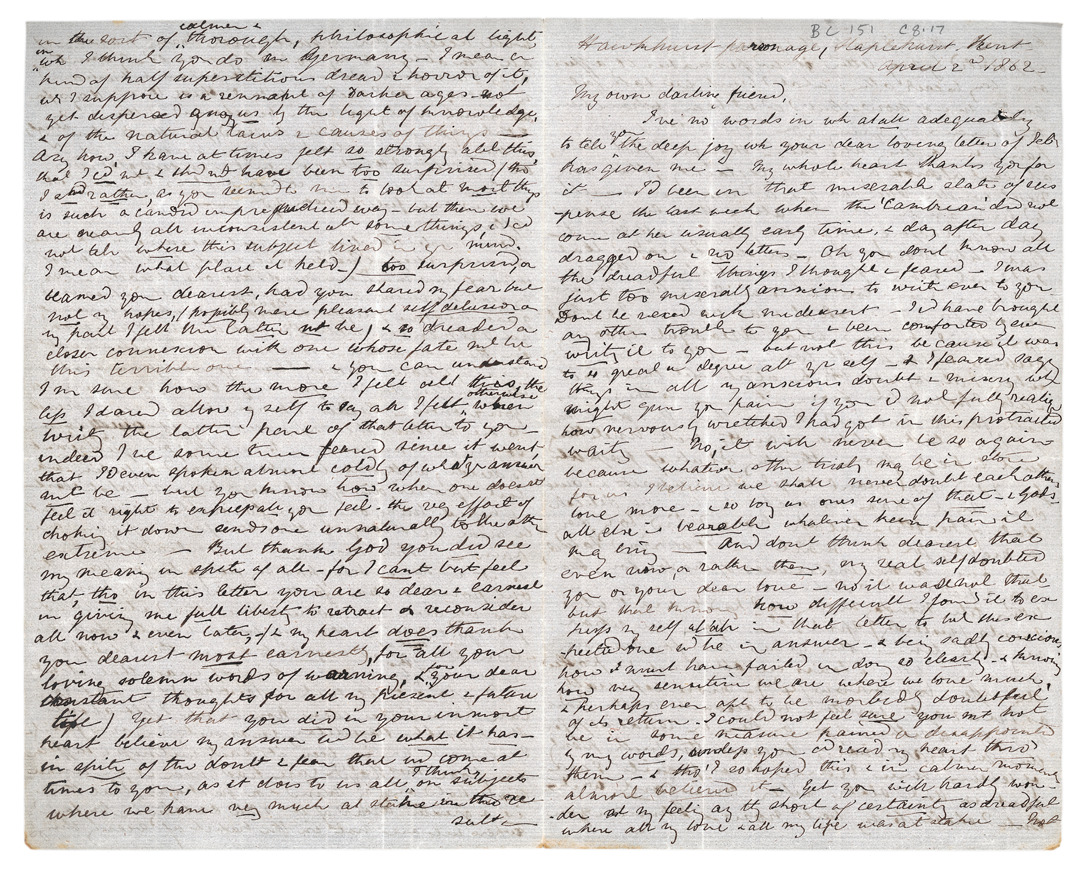 BC 151 C8.17
Hawkhurst parsonage, Staplehurst, Kent
April 2nd 1862-
My own darling friend,
I've no words in wh at all adequately
to tell yo the deep joy wh your dear loving letter of Feb
has given me — My whole heart thanks you for
it — I'd been in that miserable state of sus
-pense the last week when the Cambrian did not
come at her usually early time, & day after day
dragged on & no letters — Oh you dont know all
the dreadful things I thought & feared — I was
just too miserably anxious to write even to you-
Dont be vexed with me dearest — I'd have brought
any other trouble to you & been comforted by even
writg it to you — but not this because it was
to so great a degree abt yr self — & I feared sayg
things in all my anxious doubt & misery wh
might give you pain if you d not fully realize
how nervously wretched I had got in this protracted
waitg — No, it will never be so again
because whatever other trials may be in store
for us I believe we shall never doubt each others
love more — so long as one's sure of that — & God's
all else is bearable whatever keen pain it
may bring — And dont think dearest that
even now, or rather then, my real self doubted
you or your dear love — no it was not that
but that know how difficult I found it to ex
press my self at all in that letter to wh this ex
pected one wd be in answer — & being sadly conscious
how I must have failed in doing so clearly — & knowing
how very sensitive we are where we love much,
& perhaps even apt to be morbidly doubtful
of its return — I could not feel sure you mt not
be in some measure pained or disappointed
by my words, unless you cd read my heart thro'
them — & tho' I so hoped this & in calmer moments
almost believed it — yet you will hardly won-
der at my feeling any th short of certainty as dreadful
where all my love & all my life was at stake — Not
in the sort of calmer & thorough, philosophical light
in wh I think you do in Germany — I mean a
kind of half superstitious dread & horror of it,
wh I suppose is a remnant of darker ages — not
yet dispersed among us by the light of knowledge,
& of the natural laws & causes of things —
Any how, I have at times felt so strongly abt this,
that I cd nt & shd nt have been too surprised (tho
I shd rather, as you seemed to me to look at most things
is such a candid unprejudiced way — but then we
are nearly all inconsistent abt some things & I cd
not tell where this subject lived in yr mind.
I mean what place it held —) too surprised, or
blamed you dearest, had you shared my fear but
not my hopes, (possibly mere pleasant self delusion on
my part I felt this latter mt be, & so dreaded a
closer connexion with one whose fate mt be
this terrible one — & you can understand
I'm sure how the more I felt all this, the
less I dared allow myself to say all I felt otherwise when
writg the latter part of that letter to you —
indeed I've some times feared since it went,
that I'd even spoken almost coldly of what yr answer
mt be — but you know how, when one does not
feel it right to express all you feel — the very effort of
choking it down sends one unnaturally to the other
extreme — But thank God you did see
my meaning in spite of all — for I cant but feel
that, tho in this letter you are so dear & earnest
in giving me full liberty to retract & reconsider
all now & even later, (& my heart does thank
you dearest most earnestly, for all your
loving solemn words of warning, & for your dear
constant thoughts for all my present & future
life) Yet that you did in your inmost
heart believe my answer wd be what it has —
in spite of the doubt & fear that wd come at
times to you, as it does to us all I think on subjects
where we have very much at stake in the re
sult —